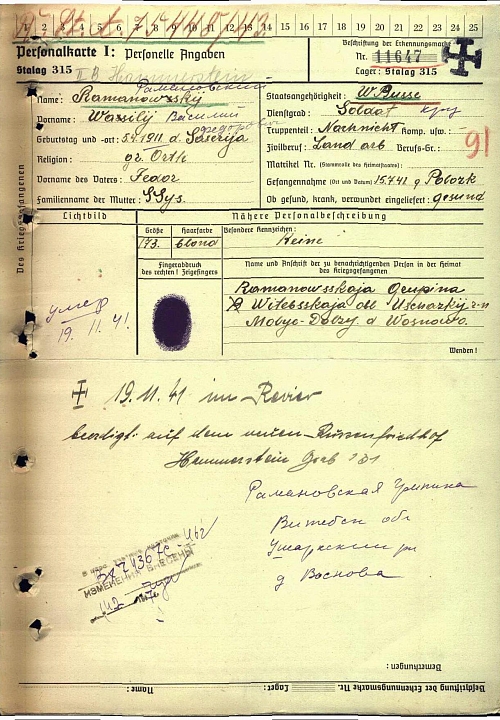 1 2 3 4 5 6 7 8 9 10 11 12 13 14 15 16 17 18 19 20 21 22 23 24 25
Personalkarte I: Personelle Angaben
Stalag 315
II B Hammerstein
Beschriftung der Erkennungsmarke
Nr. 11647
Lager: Stalag 315
Des Kriegsgefangenen
Рамановский
Name: Ramanowskij
Vorname: Wassilij Василий
Geburtstag und -ort: 5.4.1911 d.
Religion: gr. Orth
Vorname des Vaters: Fedor
Familienname der Mutter:
Staatsangehörigkeit: W. Russe
Dienstgrad: Soldat
Truppenteil: Nachricht Komp. usw.:
Zivilberuf: Land arb Berufs-Gr.:
91
Matrikel Nr. (Stammrolle des Heimatstaates):
Gefangennahme (Ort und Datum) 15.7.41 g Polozk
Ob gesund, krank, verwundet eingeliefert: gesund
Lichtbild
Nähere Personalbeschreibung
Größe Haarfarbe Besondere Kennzeichen:
173. blond Keine
Fingerabdruck
des rechten! Zeigefingers
Name und Anschrift der zu benachrichtigenden Person in der Heimat
des Kriegsgefangenen
Ramanowsskaja
Witebsskaja obl Uschazkij r-n
d Wosnowo.
умер
19. 11. 41.
Wenden!
19.11.41 im Revier
beerdigt: auf dem neuen Russenfriedhof
Hammerstein Grab
Рамановская
Витебск обл
Ушачский рн
д Воснова
ИЗМЕНЕНИЯ ВНЕСЕНЫ
Bemerkungen:
Beschriftung der Erkennungsmarke Nr.
Lager:
Name: